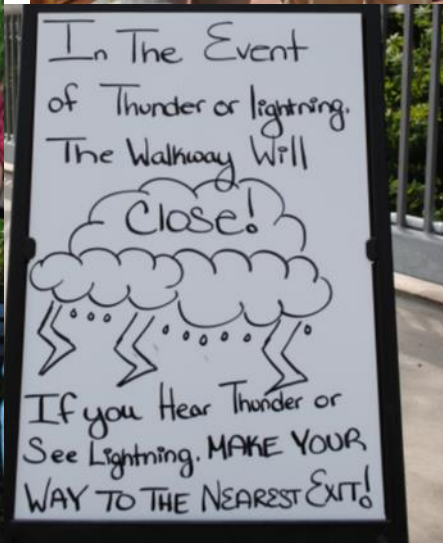 In The Event
of Thunder or lightning.
The Walkway Will
Close!
If you Hear Thunder or
See Lightning. MAKE YOUR
WAY TO THE NEAREST EXIT!